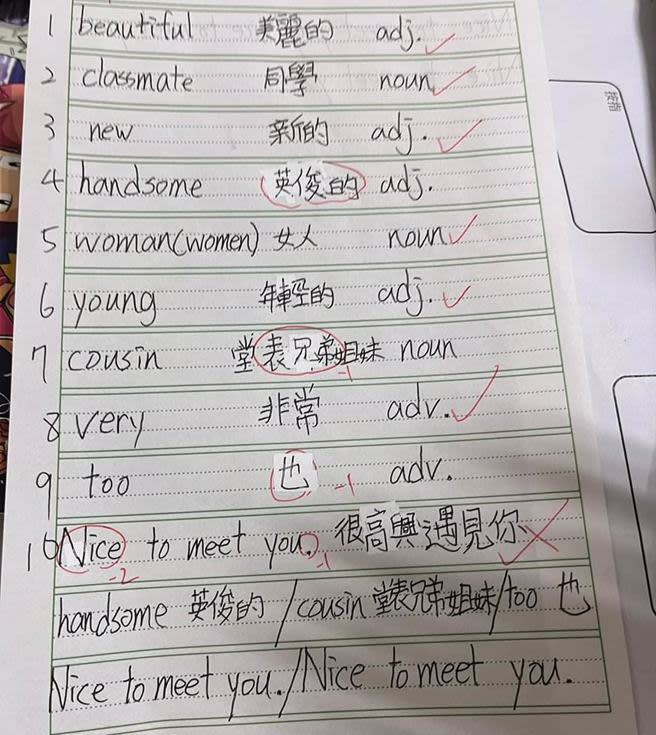 1 beautiful 美麗的 adj.
2 classmate 同學 noun
3 new 新的 adj.
4 handsome 英俊的 adj.
5 woman(women) 女人 noun
6 young 年輕的 adj.
7 cousin 堂表兄弟姐妹 noun -1
8 very 非常 adv.
9 too 也 -1 adv.
10 Nice to meet you. 很高興遇見你 -2 -1
handsome 英俊的/cousin 堂表兄弟姐妹/too 也
Nice to meet you./Nice to meet you.